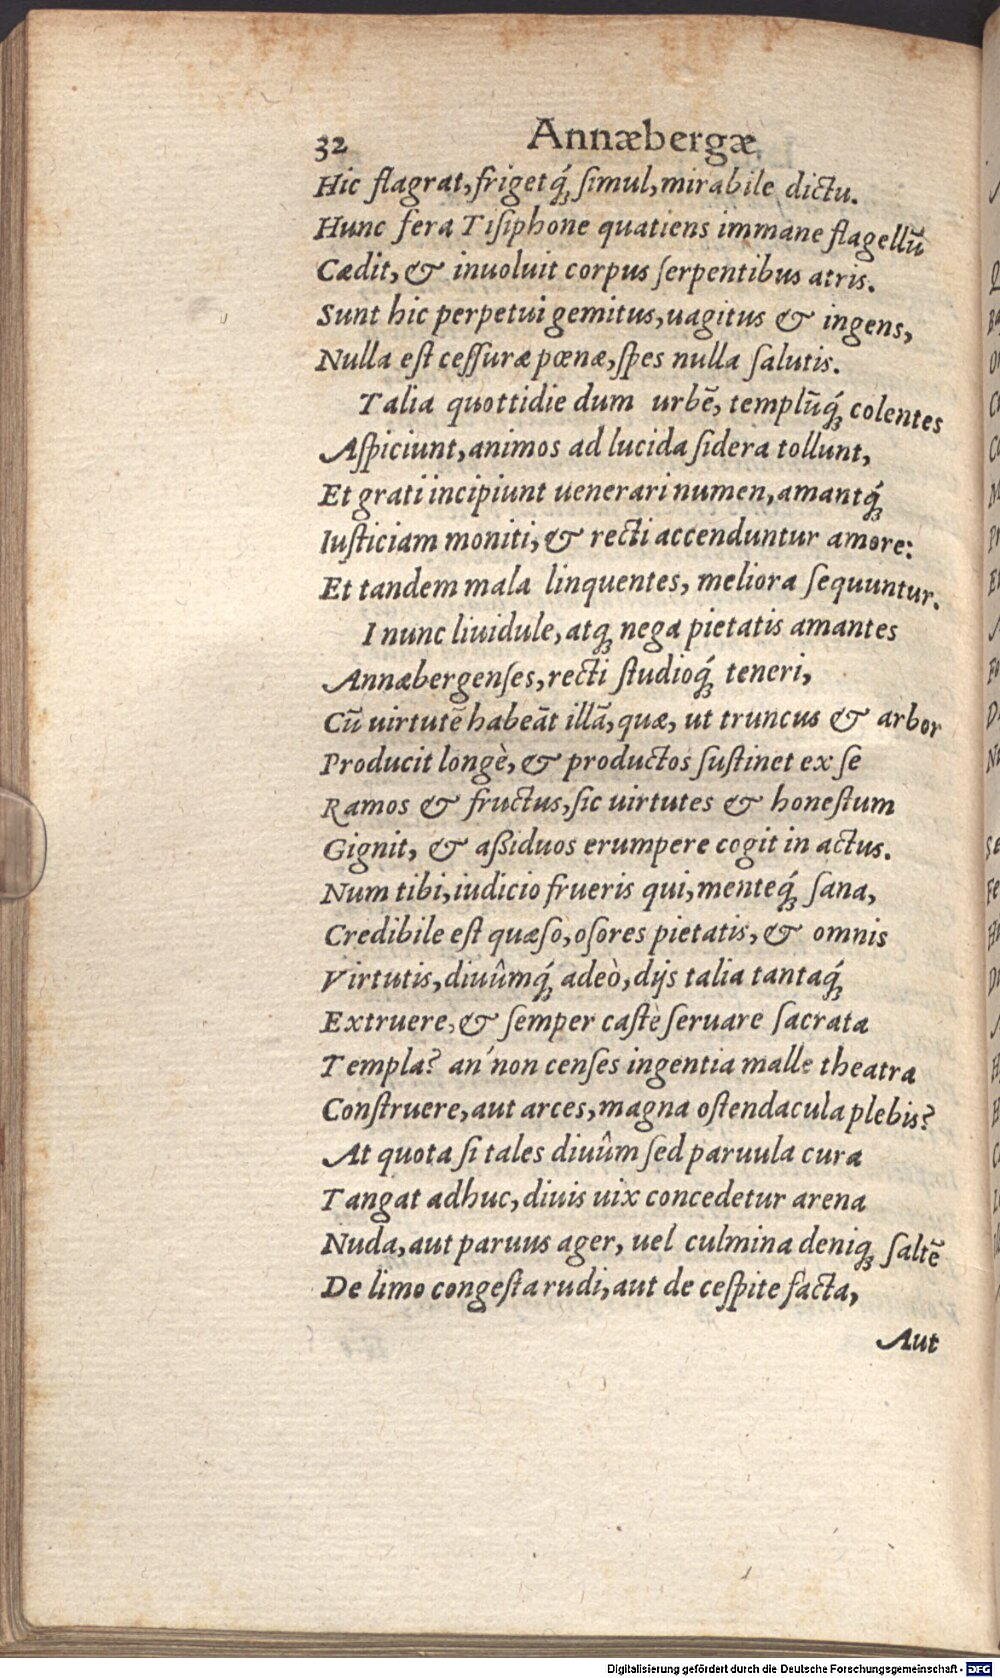 32 Annæbergæ
Hic flagrat, frigetq́; ſimul, mirabile dictu.
Hunc fera Tiſiphone quatiens immane flagellũ
Cædit, & inuoluit corpus ſerpentibus atris.
Sunt hic perpetui gemitus, uagitus & ingens,
Nulla eſt ceſſuræ pœnæ, ſpes nulla ſalutis.
Talia quottidie dum urbẽ, templũq́; colentes
Aſpiciunt, animos ad lucida ſidera tollunt,
Et grati incipiunt uenerari numen, amantq́;
Iuſticiam moniti, & recti accenduntur amore:
Et tandem mala linquentes, meliora ſequuntur.
I nunc liuidule, atq; nega pietatis amantes
Annæbergenſes, recti ſtudioq́; teneri,
Cũ uirtutẽ habeãt illã, quæ, ut truncus & arbor
Producit longè, & productos ſuſtinet ex ſe
Ramos & fructus, ſic uirtutes & honeſtum
Gignit, & aßiduos erumpere cogit in actus.
Num tibi, iudicio frueris qui, menteq́; ſana,
Credibile eſt quæſo, oſores pietatis, & omnis
Virtutis, diuûmq́; adeò, dijs talia tantaq́;
Extruere, & ſemper caſtè ſeruare ſacrata
Templa? an' non cenſes ingentia malle theatra
Conſtruere, aut arces, magna oſtendacula plebis?
At quota ſi tales diuûm ſed paruula cura
Tangat adhuc, diuis uix concedetur arena
Nuda, aut paruus ager, uel culmina deniq; ſaltẽ
De limo congeſta rudi, aut de ceſpite facta,
Aut
Digitalisierung gefördert durch die Deutsche Forschungsgemeinschaft - DFG